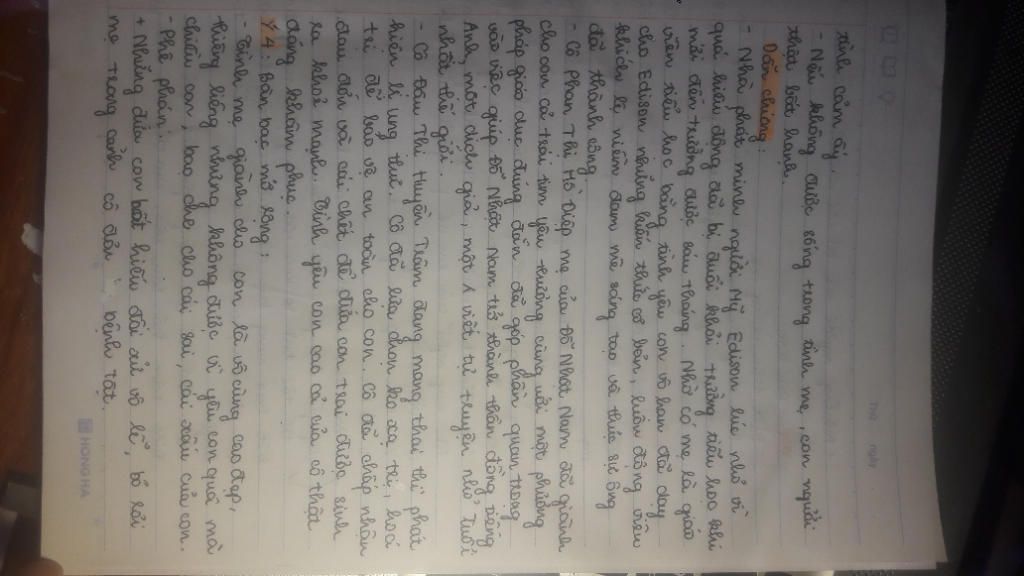 Thứ ngày
tình cảm ấy.
- Nếu không được sống trong tình mẹ, con người
thật bất hạnh.
Dẫn chứng:
- Nhà phát minh người Mỹ Edison lúc nhỏ vì
quá hiếu động đã bị đuổi khỏi trường tiểu học khi
mới đến trường được sáu tháng. Nhờ có mẹ là giáo
viên tiểu học bằng tình yêu con vô hạn đã dạy
cho Edison những kiến thức cơ bản, luôn động viên
khích lệ niềm đam mê sáng tạo và thực sự ông
đã thành công
- Cô Phan Thị Hồ Điệp mẹ của Đỗ Nhật Nam đã giành
cho con cả trái tim yêu thương cùng với một phương
pháp giáo dục đúng đắn đã góp phần quan trọng
vào việc giúp Đỗ Nhật Nam trở thành thần đồng tiếng
Anh, một dịch giả, một viết tự truyện nhỏ tuổi
nhất thế giới.
- Cô Đậu Thị Huyền Trâm đang mang thai thì phát
hiện bị ung thư. Cô đã lựa chọn ko xạ trị, hoá
trị để bảo vệ an toàn cho con. Cô đã chấp nhận
đau đớn và cái chết để đứa con trai được sinh
ra khoẻ mạnh. Tình yêu con cao cả của cô thật
đáng khâm phục.
Ý 4: Bàn bạc mở rộng:
- Tình mẹ giành cho con là vô cùng cao đẹp,
thiêng liêng nhưng không được vì yêu con quá mà
chiều con, bao che cho cái sai, cái xấu của con.
- Phê phán:
+ Những đứa con bất hiếu đối xử vô lễ, bỏ rơi
mẹ trong cảnh cô đơn bệnh tật.
HONG HA